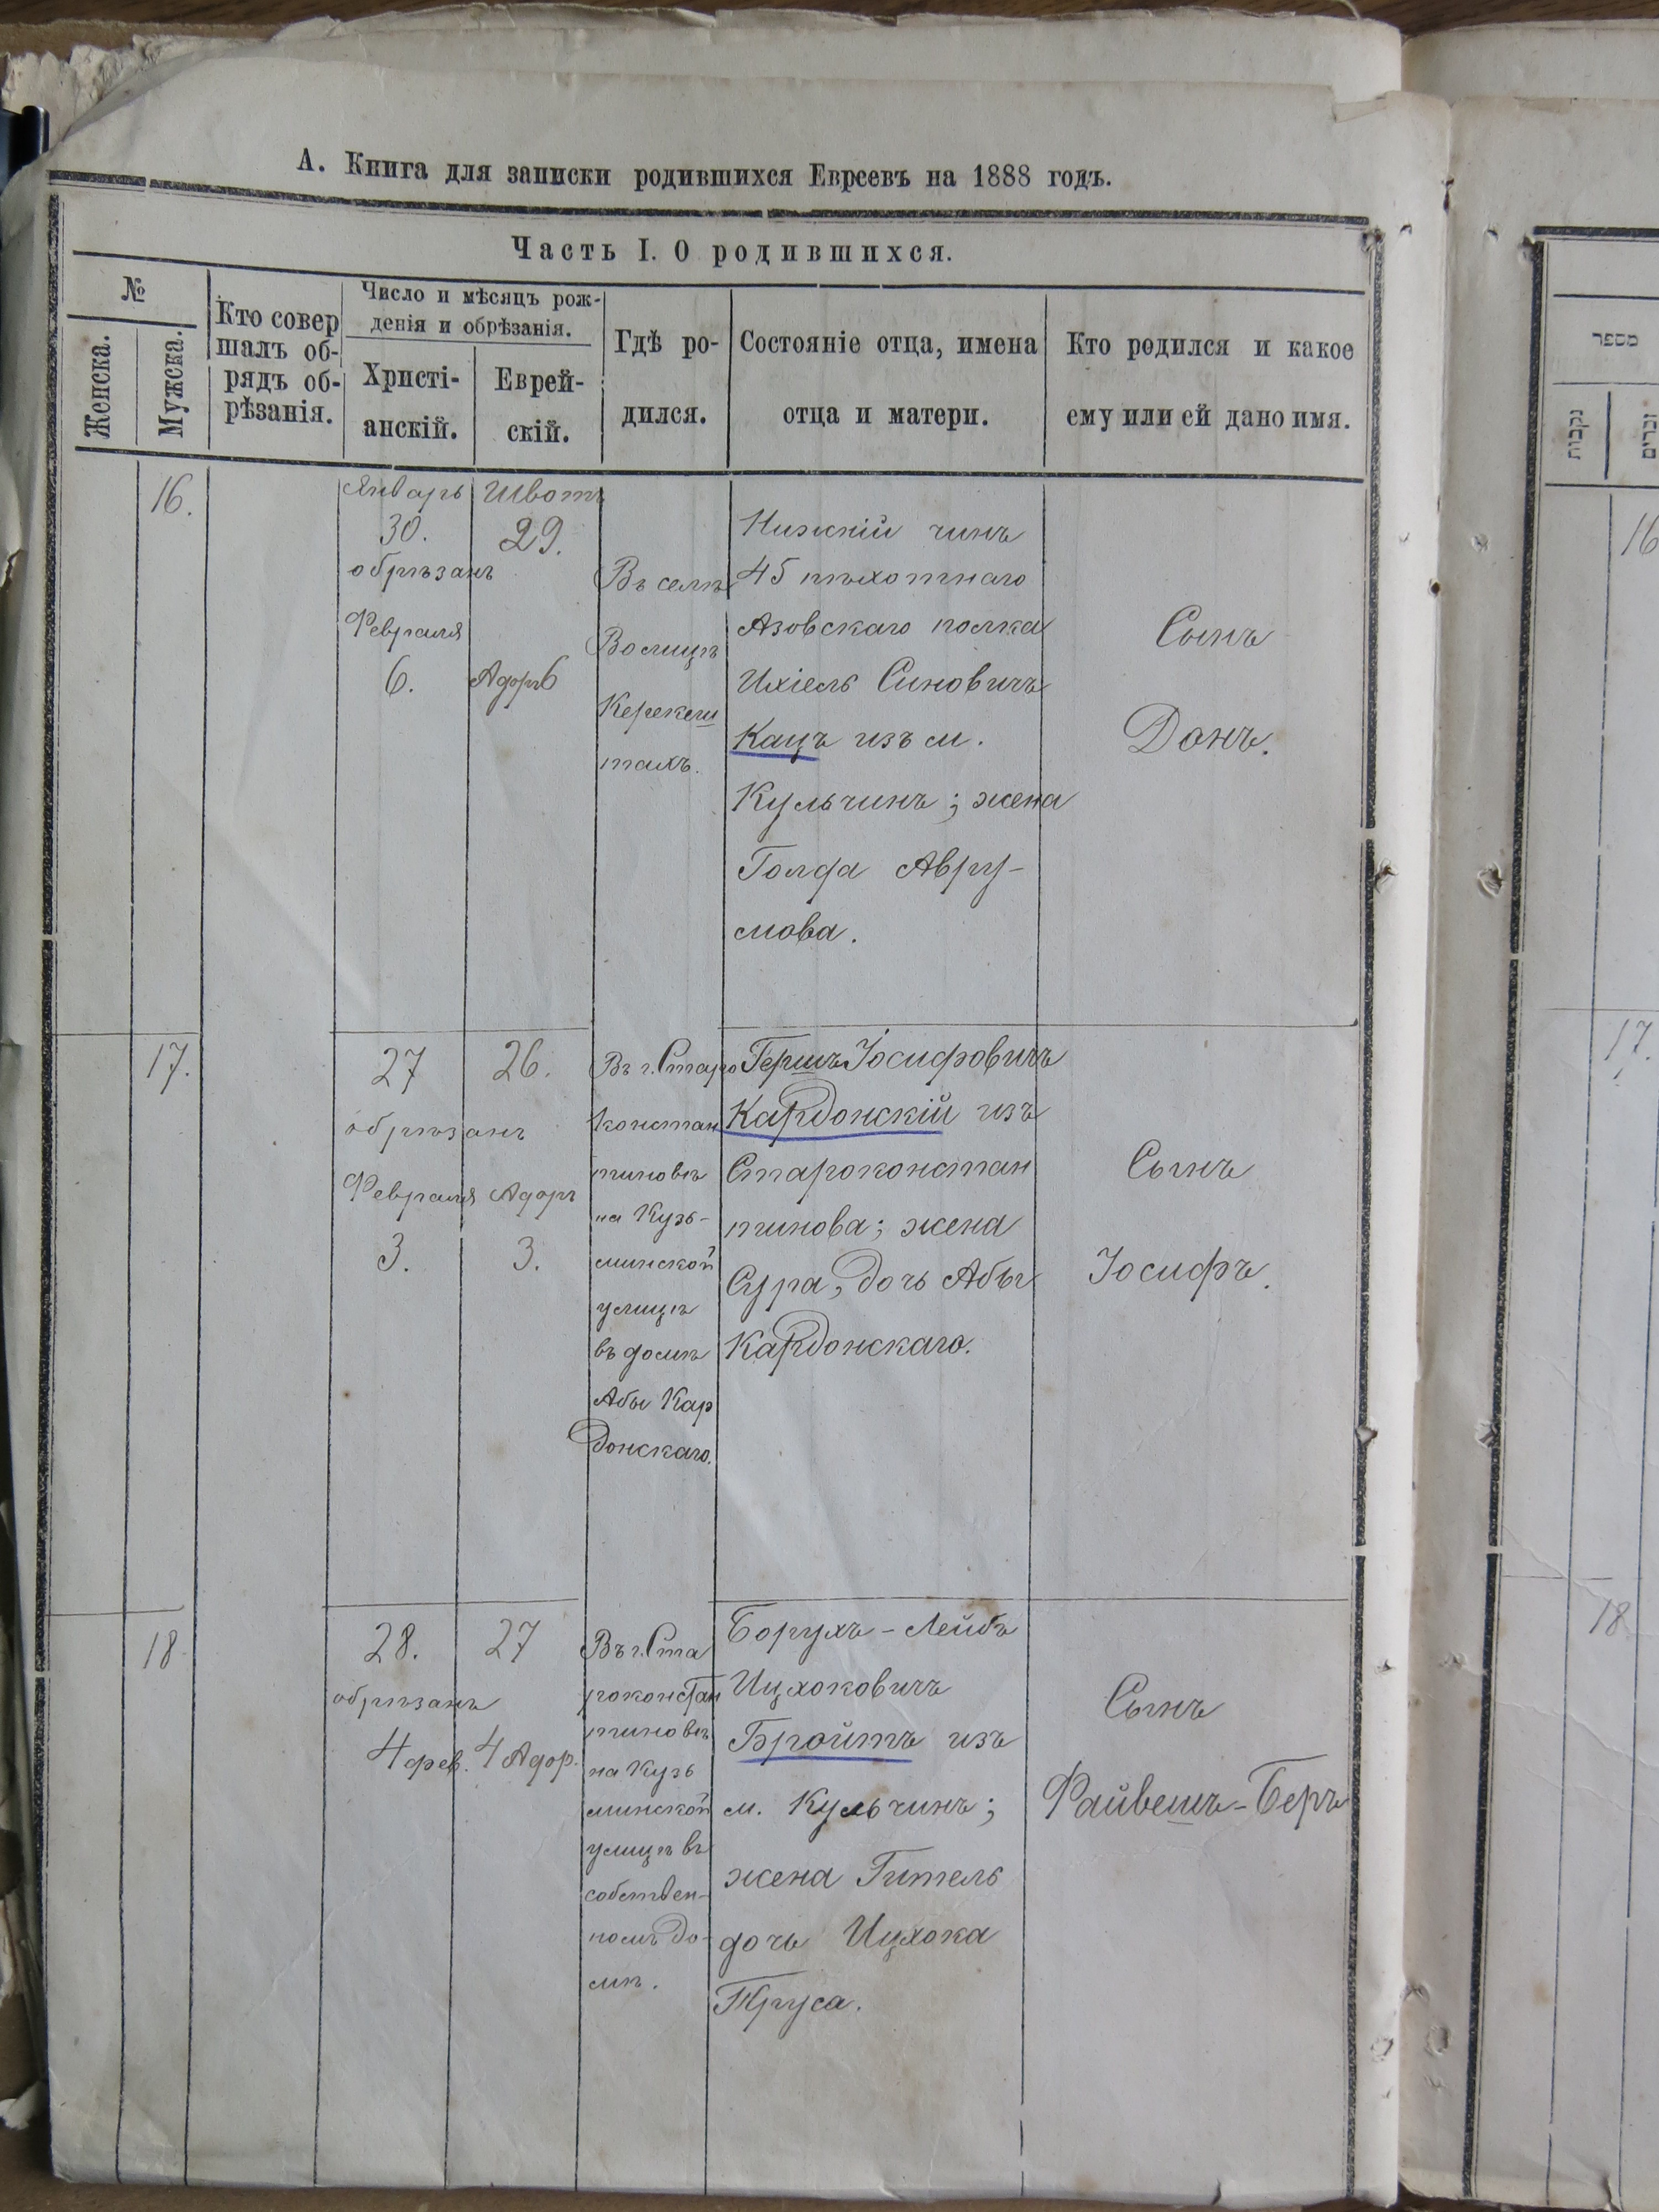 А. Книга для записки родившихся Евреевъ на 1888 годъ.
Часть I. О родившихся.
№
Женска.
Мужска.
Кто совер
шалъ об-
рядъ об-
рѣзанія.
Число и мѣсяцъ рож-
денія и обрѣзанія.
Христі-
анскій.
Еврей-
скій.
Гдѣ ро-
дился.
Состояніе отца, имена
отца и матери.
Кто родился и какое
ему или ей дано имя.
16.
Январь
30.
обрѣзанъ
Февраля
6.
Швотъ
29.
Адоръ 6
Въ селѣ
Волицѣ
Керекеш
тахъ.
Нижній чинъ
45 пѣхотнаго
Азовскаго полка
Ихіель Синовичъ
Кацъ изъ м.
Кульчинъ; жена
Голда Авру-
мова.
Сынъ
Донъ.
17.
27
обрѣзанъ
Февраля
3.
26.
Адоръ
3.
Въ г. Старо
констан
тиновѣ
на Кузь-
минской
улицѣ
въ домѣ
Абы Кар
донскаго.
Гершъ Іосифовичъ
Кардонскій изъ
Староконстан
тинова; жена
Сура, дочь Абы
Кардонскаго.
Сынъ
Іосифъ.
18.
28.
обрѣзанъ
4 фев.
27
4 Адор.
Въ г. Ста
роконстан
тиновѣ
на Кузь
минской
улицѣ въ
собствен-
номъ до-
мѣ.
Борухъ-Лейбъ
Ицхоковичъ
Бройтъ изъ
м. Кульчинъ;
жена Гитель
дочь Ицхока
Пруса.
Сынъ
Файвешъ-Беръ
מספר
נקבות
זכרים
16
17.
18